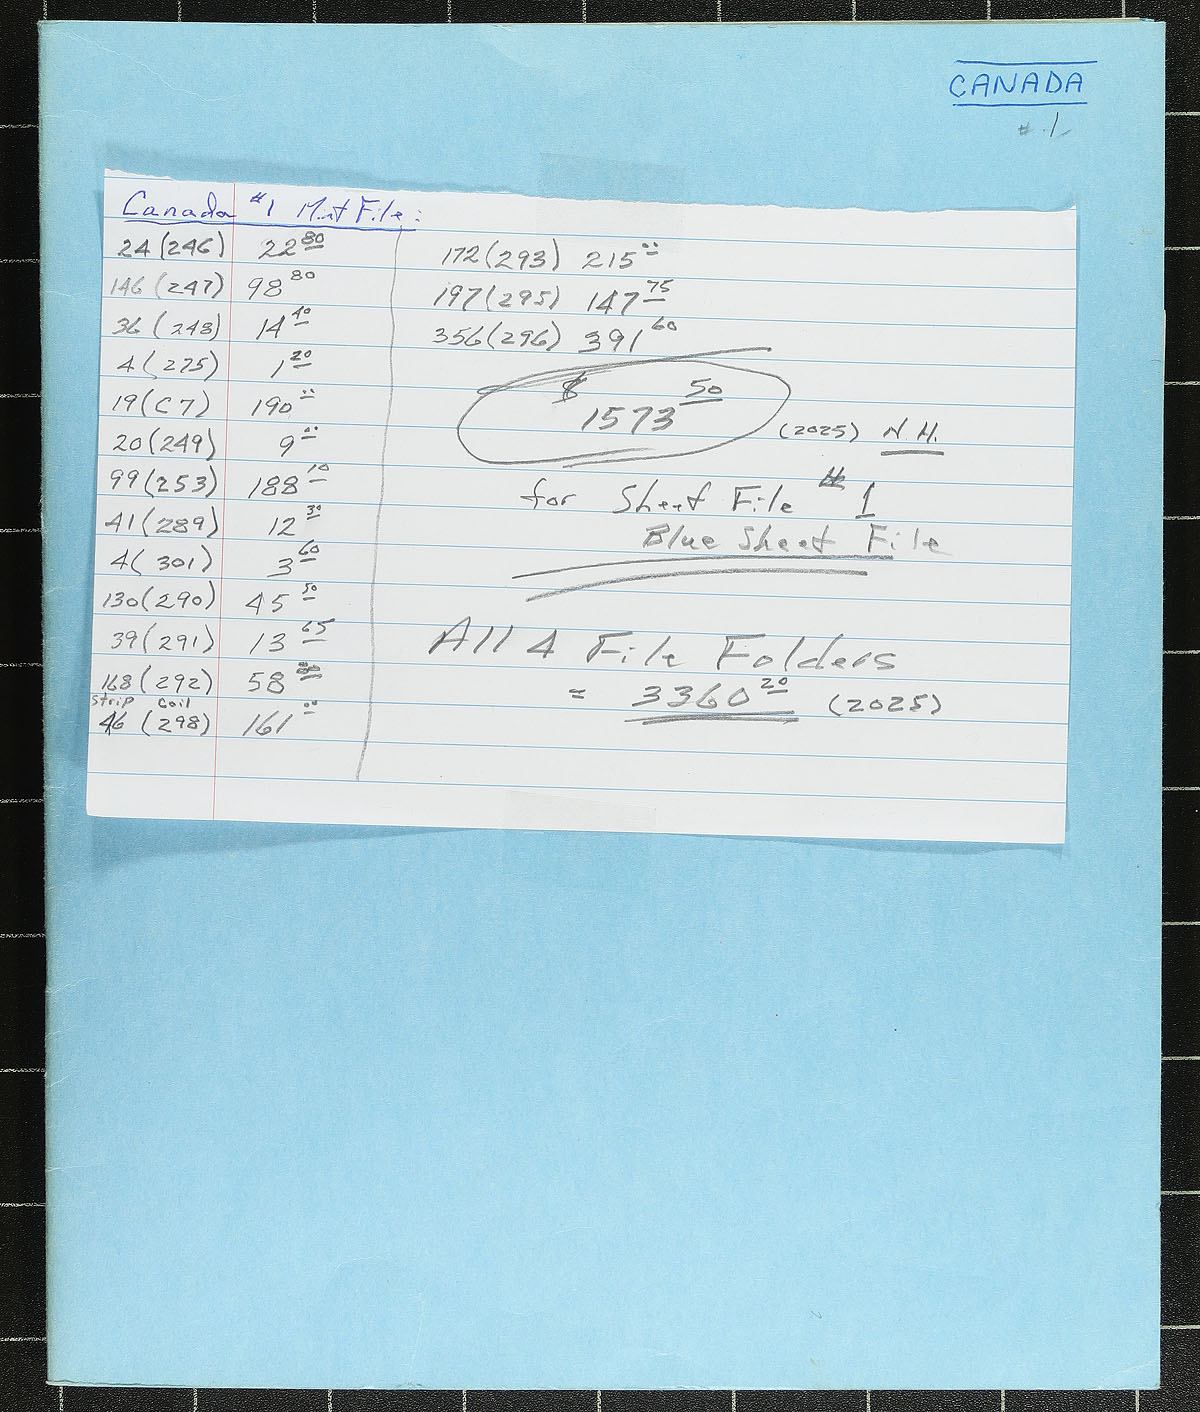 CANADA
# 1
Canada #1 Mint File:
24 (246) 22 80
146 (247) 98 80
36 (248) 14 40
4 (275) 1 20
19 (C7) 190 00
20 (249) 9 00
99 (253) 188 10
41 (289) 12 30
4 (301) 3 60
130 (290) 45 50
39 (291) 13 65
168 (292) 58
strip coil
46 (298) 161 00
172 (293) 215 00
197 (295) 147 75
356 (296) 391 60
$ 1573 50
(2025) N.H.
for Sheet File # 1
Blue Sheet File
All 4 File Folders
= 3360 20 (2025)